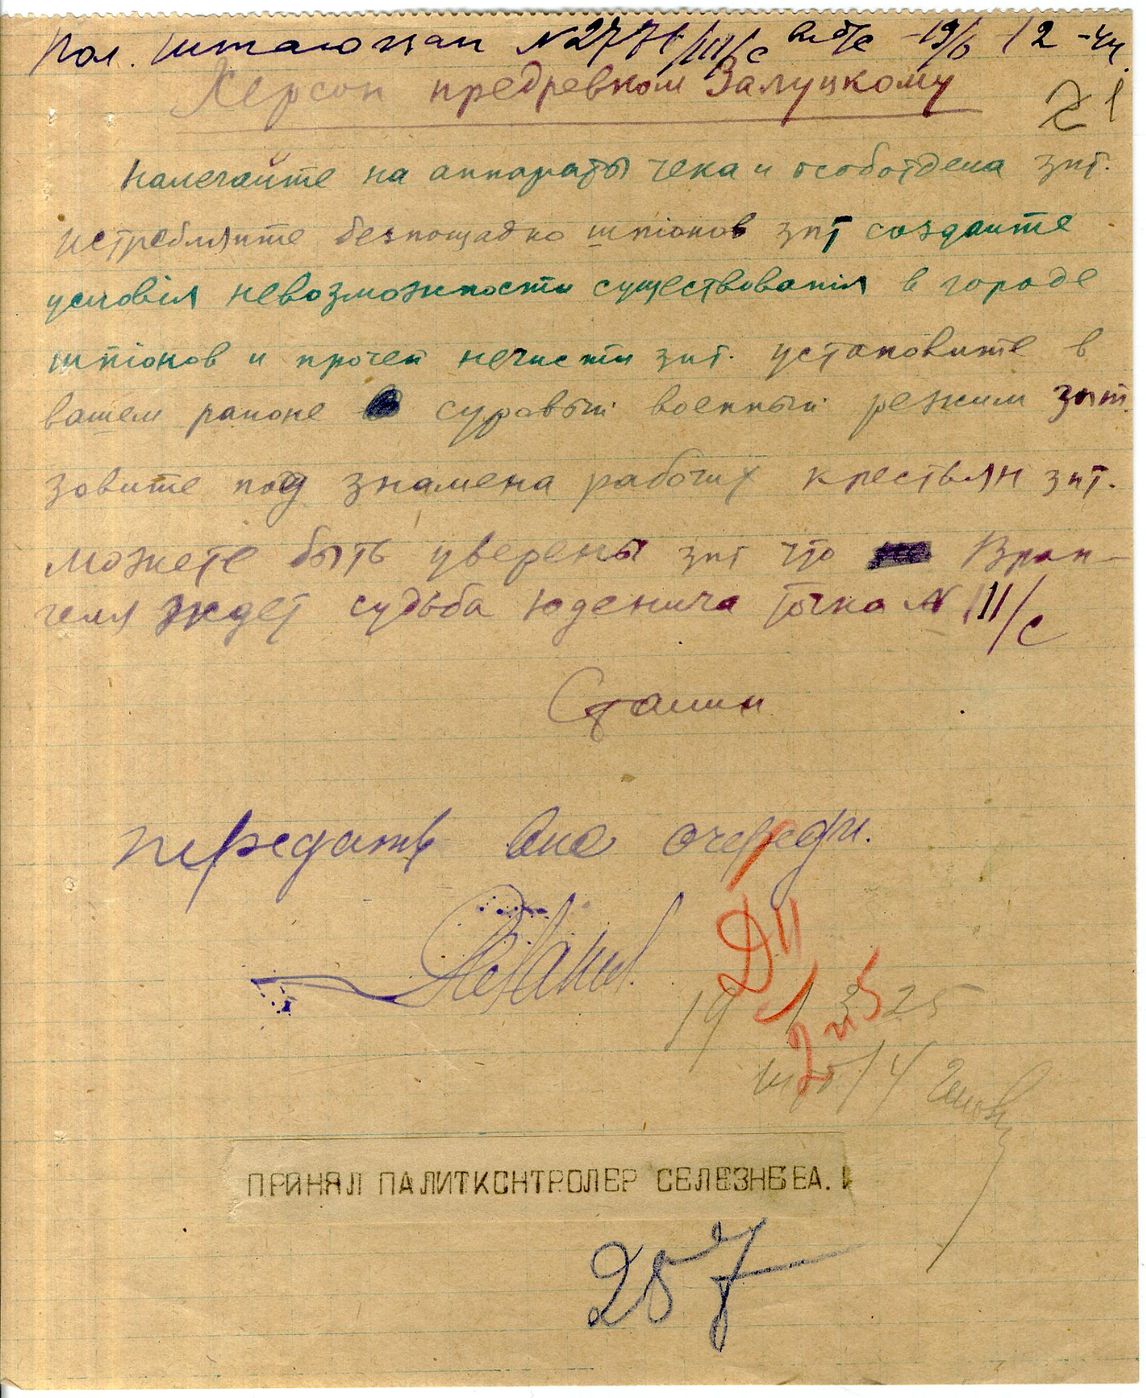 Пол. штаюжап N2771/III/с 19/6 12-44
Херсон предревком Залуцкому
налегайте на аппараты чека и особотдела зпт.
истребляите безпощадно шпіонов зпт создаите
условія невозможности существованія в городе
шпіонов и прочеи нечисти зпт. установите в
вашем раионе суровыи военныи режим зпт.
зовите под знамена рабочих крестьян зпт.
можете быть уверены зпт что Вран-
геля ждет судьба юденича точка N III/с
Сталин
передать вне очереди.
ДП
19 25
ПРИНЯЛ ПАЛИТКОНТРОЛЕР СЕЛЕЗНЕЕА.
257